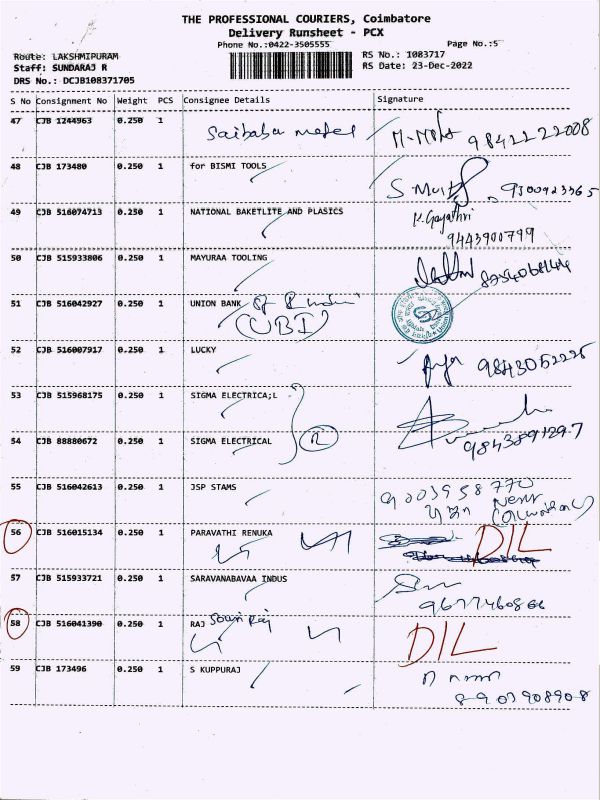 THE PROFESSIONAL COURIERS, Coimbatore
Delivery Runsheet - PCX
Phone No.:0422-3505555
Page No.:5
Route: LAKSHMIPURAM
RS No.: 1083717
Staff: SUNDARAJ R
RS Date: 23-Dec-2022
DRS No.: DCJB108371705
S No Consignment No Weight PCS Consignee Details Signature
47 CJB 1244963 0.250 1 Saibaba 98422 22008
48 CJB 173480 0.250 1 for BISMI TOOLS
49 CJB 516074713 0.250 1 NATIONAL BAKETLITE AND PLASICS K. Gayathri
9443900799
50 CJB 515933806 0.250 1 MAYURAA TOOLING
51 CJB 516042927 0.250 1 UNION BANK of India
(UBI)
52 CJB 516007917 0.250 1 LUCKY 9843052225
53 CJB 515968175 0.250 1 SIGMA ELECTRICA;L
54 CJB 88880672 0.250 1 SIGMA ELECTRICAL
55 CJB 516042613 0.250 1 JSP STAMS 9003958770
56 CJB 516015134 0.250 1 PARAVATHI RENUKA DIL
57 CJB 515933721 0.250 1 SARAVANABAVAA INDUS
58 CJB 516041390 0.250 1 RAJ DIL
59 CJB 173496 0.250 1 S KUPPURAJ
8903908908